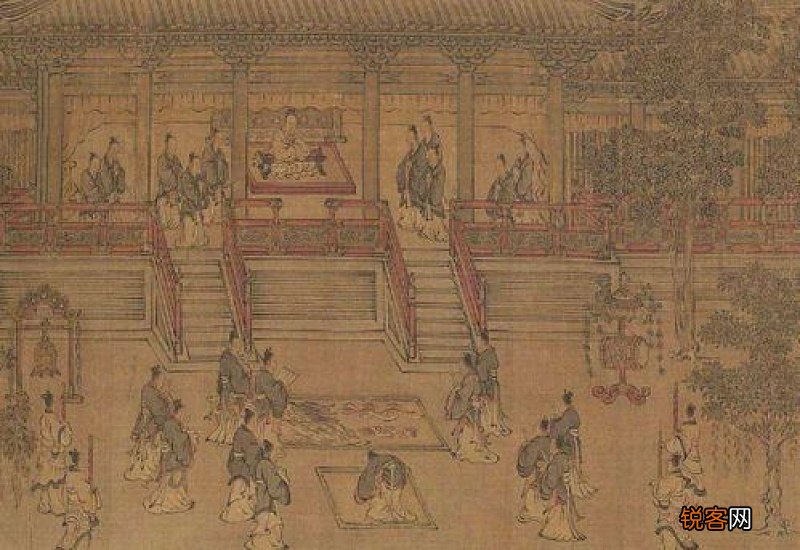 锐客网